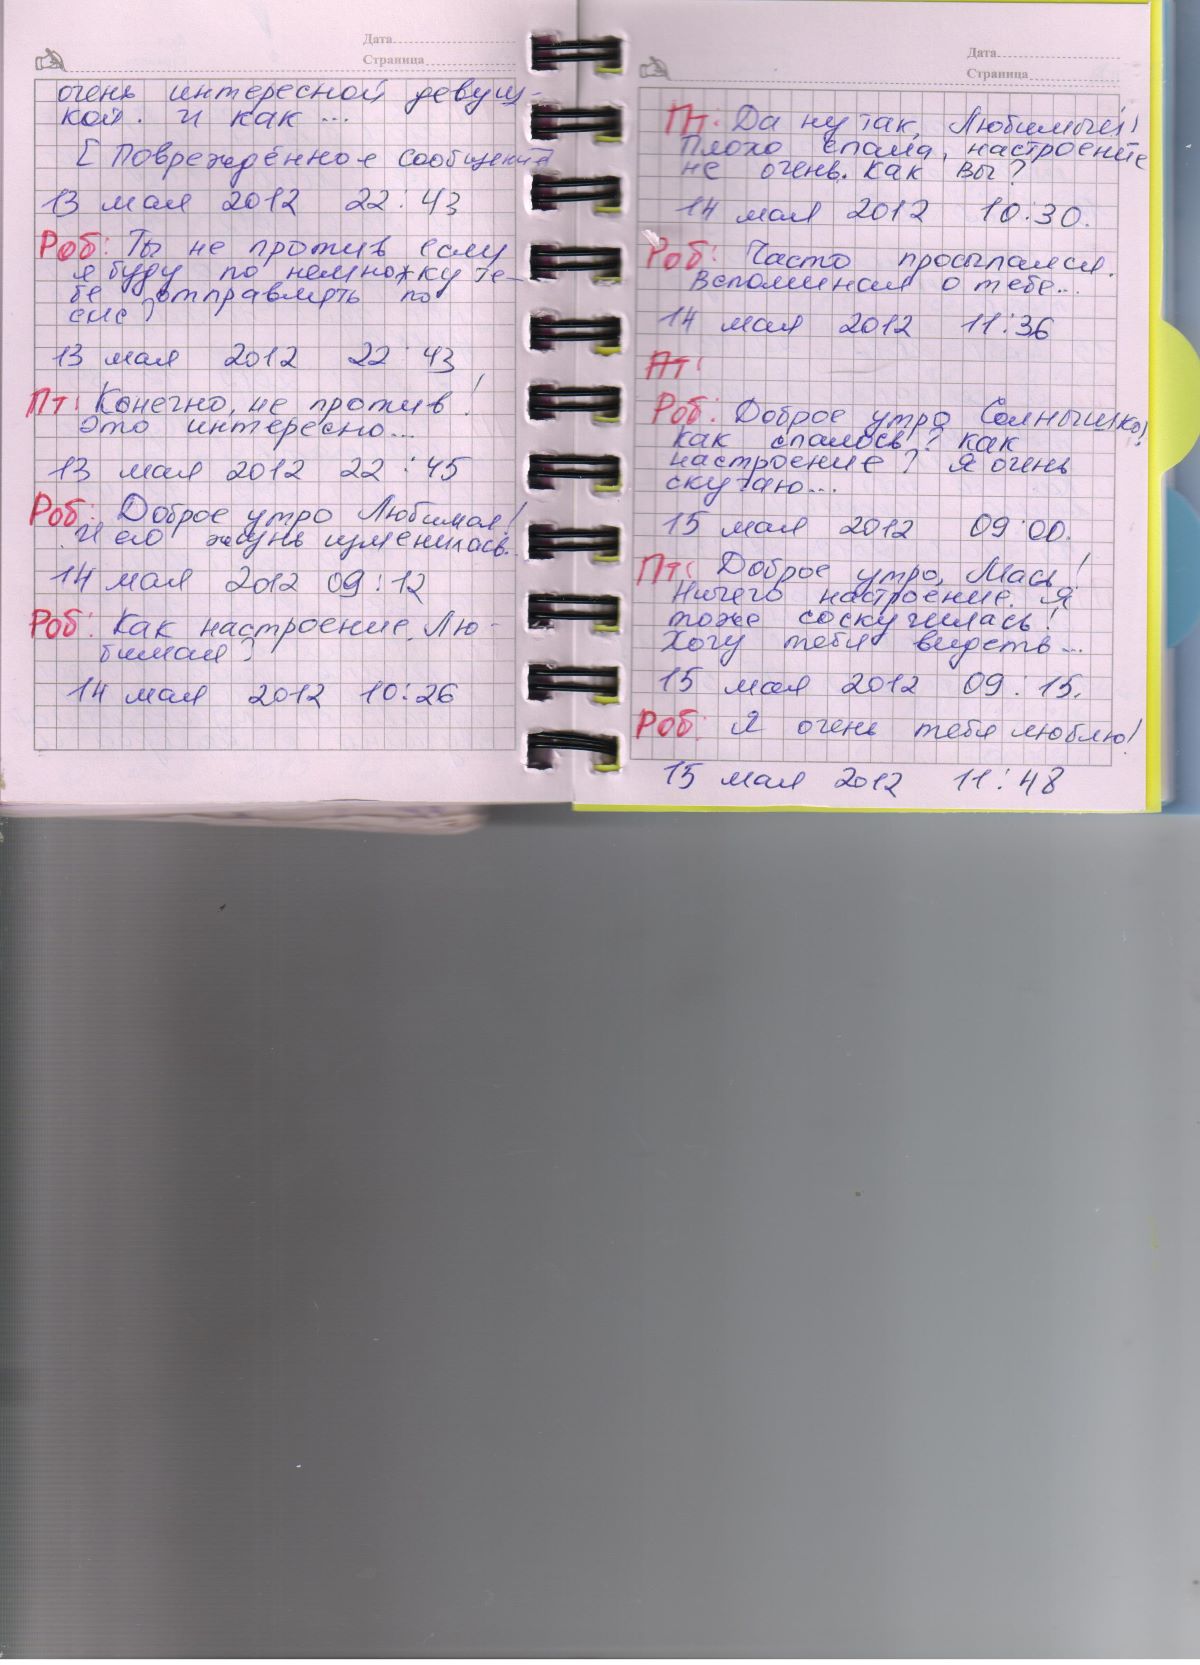 Дата
Страница
очень интересной девуш-
кой. И как ...
[Повреждённое сообщение
13 мая 2012 22:43
Роб: Ты не против если
я буду по немножку те-
бе отправлять по
смс?
13 мая 2012 22:43
Пт: Конечно, не против!
Это интересно...
13 мая 2012 22:45
Роб: Доброе утро Любимая!
И его жизнь изменилась..
14 мая 2012 09:12
Роб: Как настроение, Лю-
бимая?
14 мая 2012 10:26
Дата
Страница
Пт: Да ну так, Любимый!
Плохо спала, настроение
не очень. Как Вы?
14 мая 2012 10:30.
Роб: Часто просыпался.
Вспоминал о тебе...
14 мая 2012 11:36
Пт:
Роб: Доброе утро Солнышко!
Как спалось? Как
настроение? Я очень
скучаю...
15 мая 2012 09:00.
Пт: Доброе утро, Мась!
Ничего настроение. Я
тоже соскучилась!
Хочу тебя видеть...
15 мая 2012 09:15.
Роб: Я очень тебя люблю!
15 мая 2012 11:48